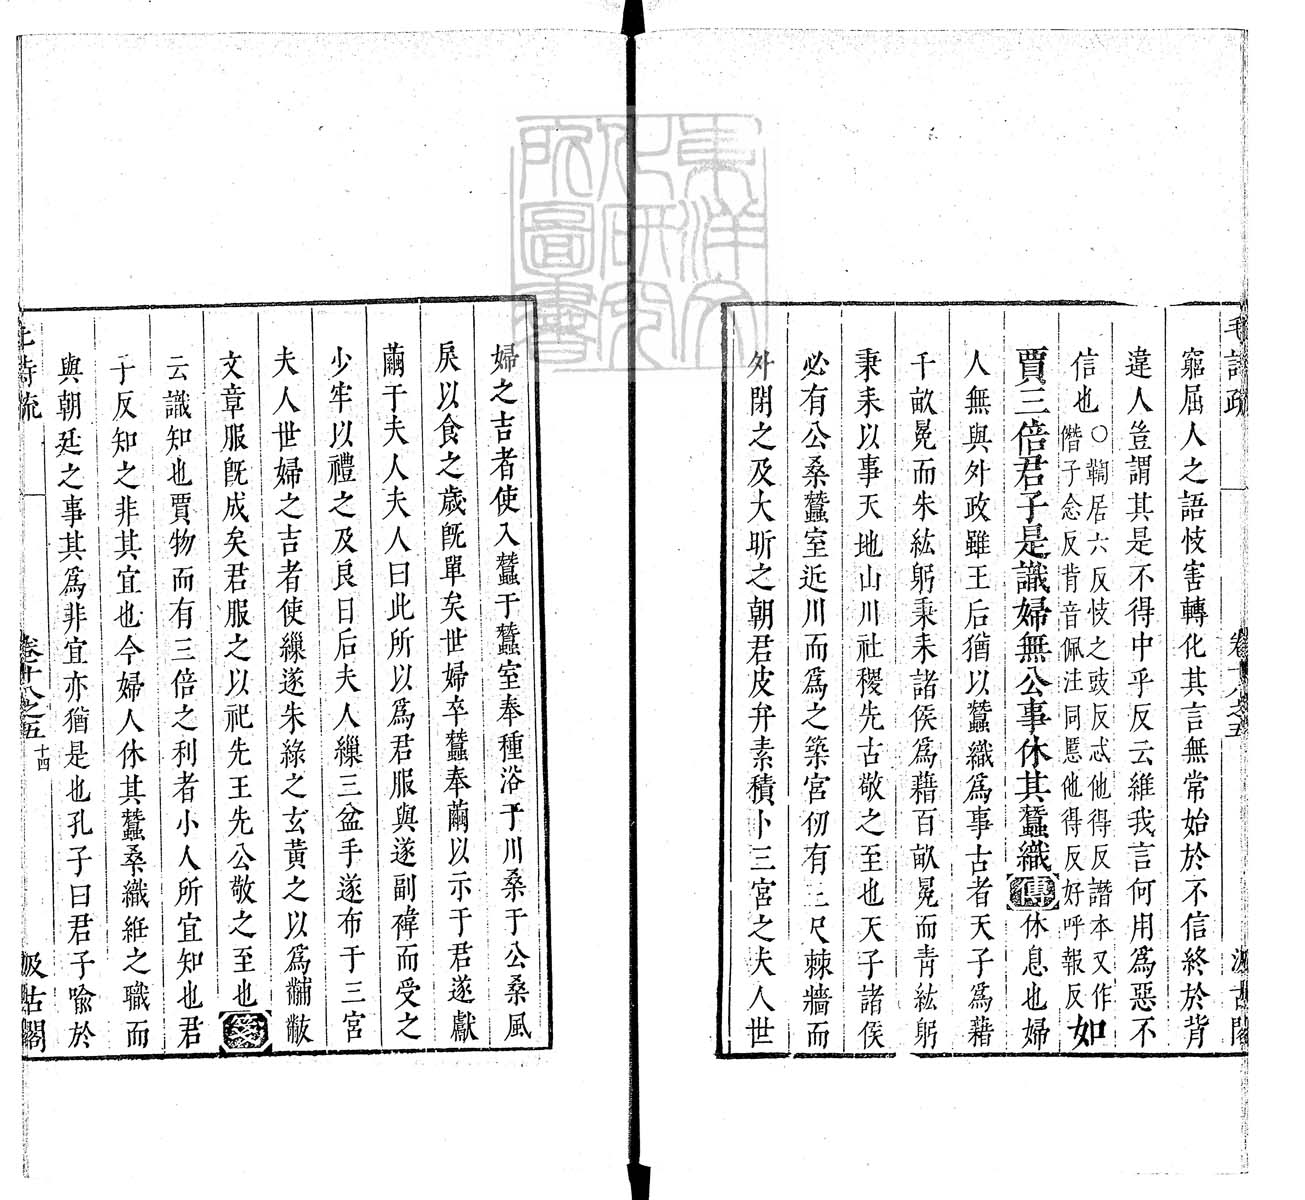 毛詩疏
卷十八之五
汲古閣
窮屈人之語忮害轉化其言無常始於不信終於背
違人豈謂其是不得中乎反云維我言何用爲惡不
信也○鞫居六反忮之豉反忒他得反譖本又作
僭子念反背音佩注同慝他得反好呼報反如
賈三倍君子是識婦無公事休其蠶織傳休息也婦
人無與外政雖王后猶以蠶織爲事古者天子爲藉
千畝冕而朱紘躬秉耒諸侯爲藉百畝冕而青紘躬
秉耒以事天地山川社稷先古敬之至也天子諸侯
必有公桑蠶室近川而爲之築宮仞有三尺棘牆而
外閉之及大昕之朝君皮弁素積卜三宮之夫人世
婦之吉者使入蠶于蠶室奉種浴于川桑于公桑風
戾以食之歲旣單矣世婦卒蠶奉繭以示于君遂獻
繭于夫人夫人曰此所以爲君服與遂副褘而受之
少牢以禮之及良日后夫人繅三盆手遂布于三宮
夫人世婦之吉者使繅遂朱綠之玄黃之以爲黼黻
文章服旣成矣君服之以祀先王先公敬之至也箋
云識知也賈物而有三倍之利者小人所宜知也君
子反知之非其宜也今婦人休其蠶桑織絍之職而
與朝廷之事其爲非宜亦猶是也孔子曰君子喻於
毛詩疏
卷十八之五
十四
汲古閣
東洋文
化研究
所圖書